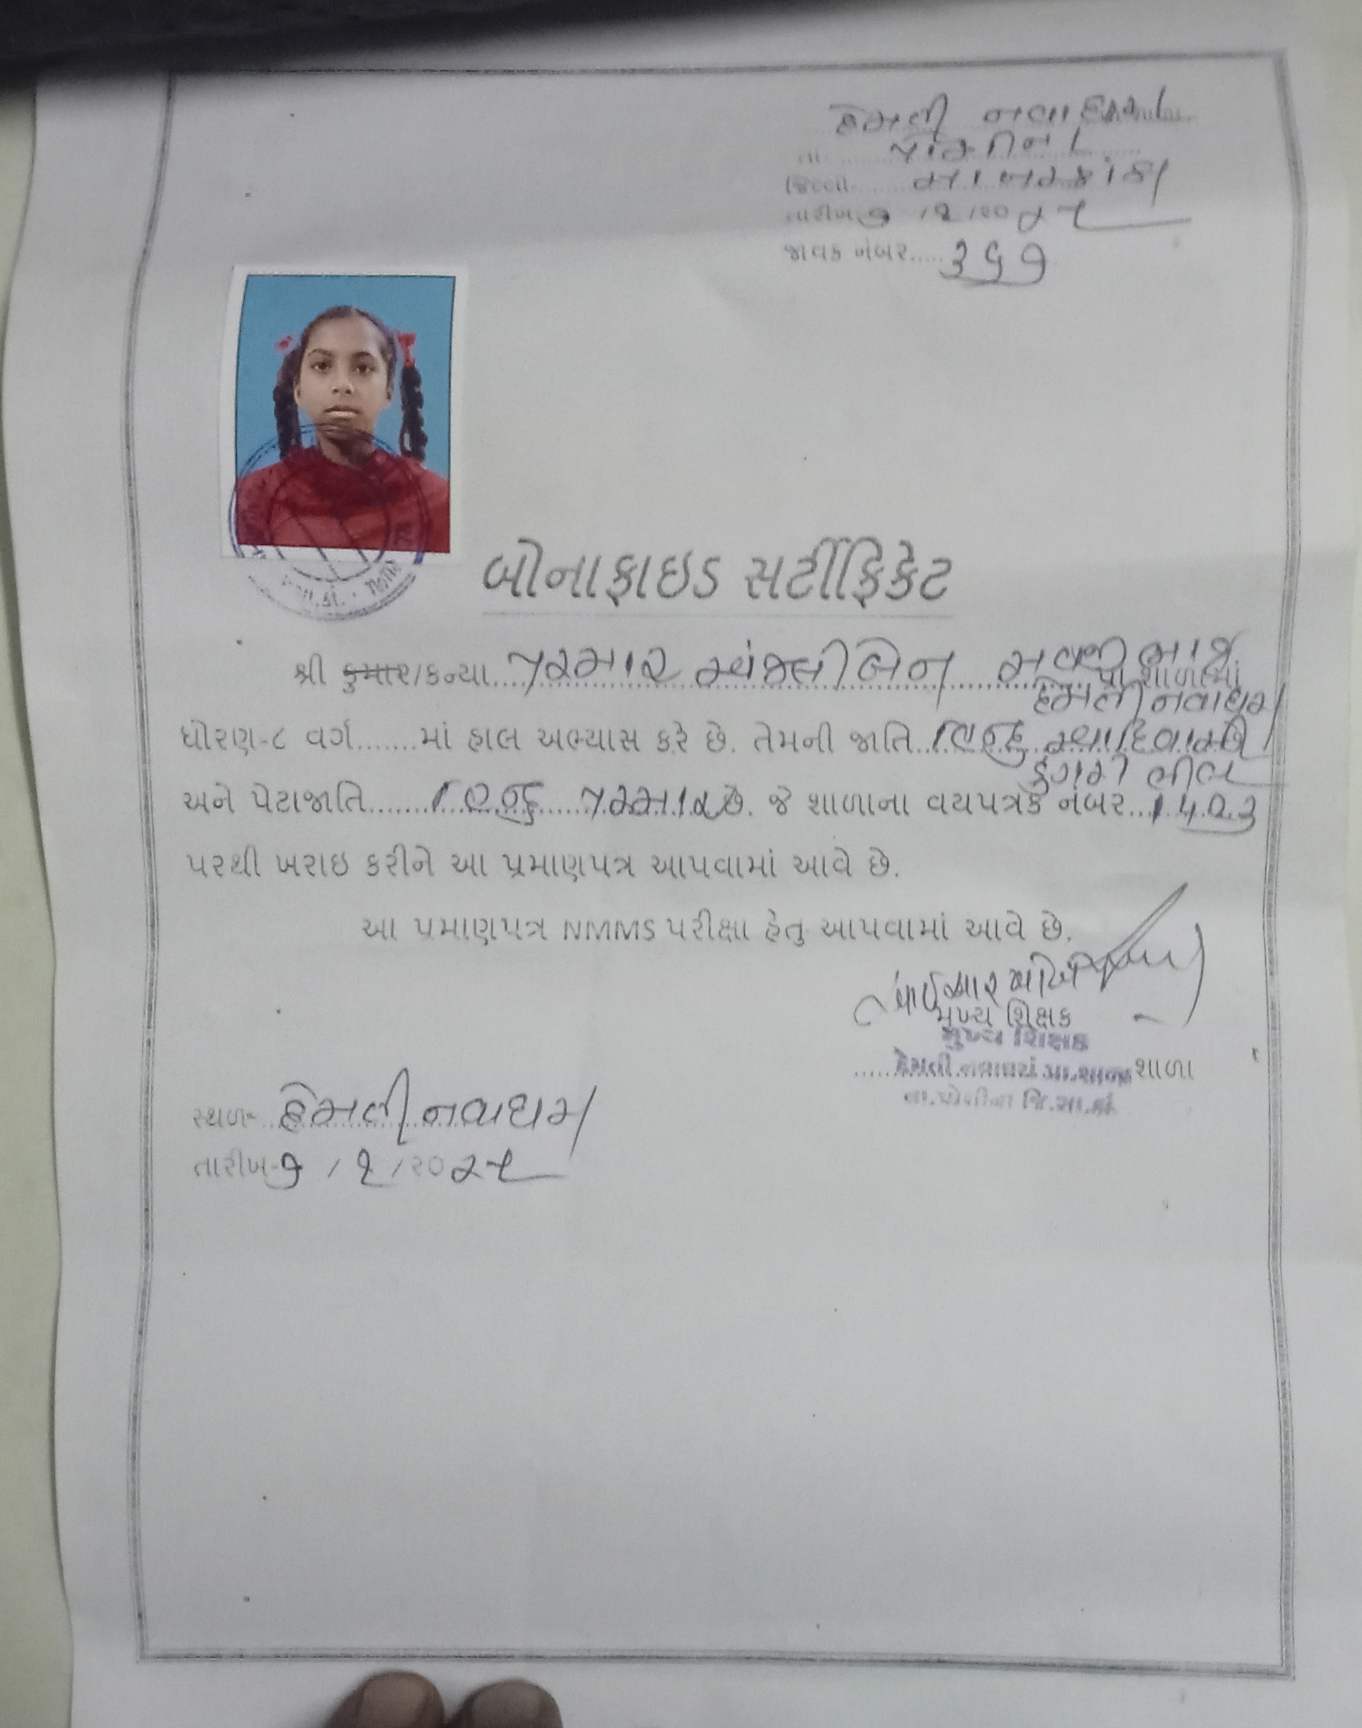 હેમતી નવાઘરા
તા. પોશીના
જિલ્લો સાબરકાંઠા
તારીખ ૭/૧/૨૦૨૫
જાવક નંબર.....૩૬૭
બોનાફાઇડ સર્ટીફિકેટ
શ્રી કુમાર/કન્યા...પરમાર અંજલીબેન પ્રા શાળામાં
હેમતી નવાઘરા
ધોરણ-૮ વર્ગ.......માં હાલ અભ્યાસ કરે છે. તેમની જાતિ..હિન્દુ આદિવાસી
ડુંગરી ભીલ
અને પેટાજાતિ.......હિન્દુ....પરમાર છે. જે શાળાના વયપત્રક નંબર...1423
પરથી ખરાઇ કરીને આ પ્રમાણપત્ર આપવામાં આવે છે.
આ પ્રમાણપત્ર NMMS પરીક્ષા હેતુ આપવામાં આવે છે.
મુખ્ય શિક્ષક
મુખ્ય શિક્ષક
.....હેમતી નવાઘરા પ્રા.શાળા શાળા
તા.પોશીના જિ.સા.કાં.
સ્થળ- હેમતી નવાઘરા
તારીખ-૭/૧/૨૦૨૫